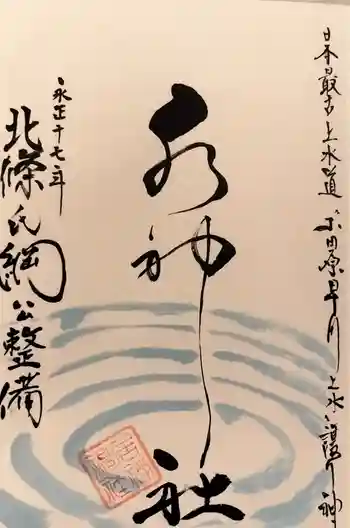 日本最古上水道 小田原早川上水ご護り神
水神社
永正十七年
北條氏綱公整備